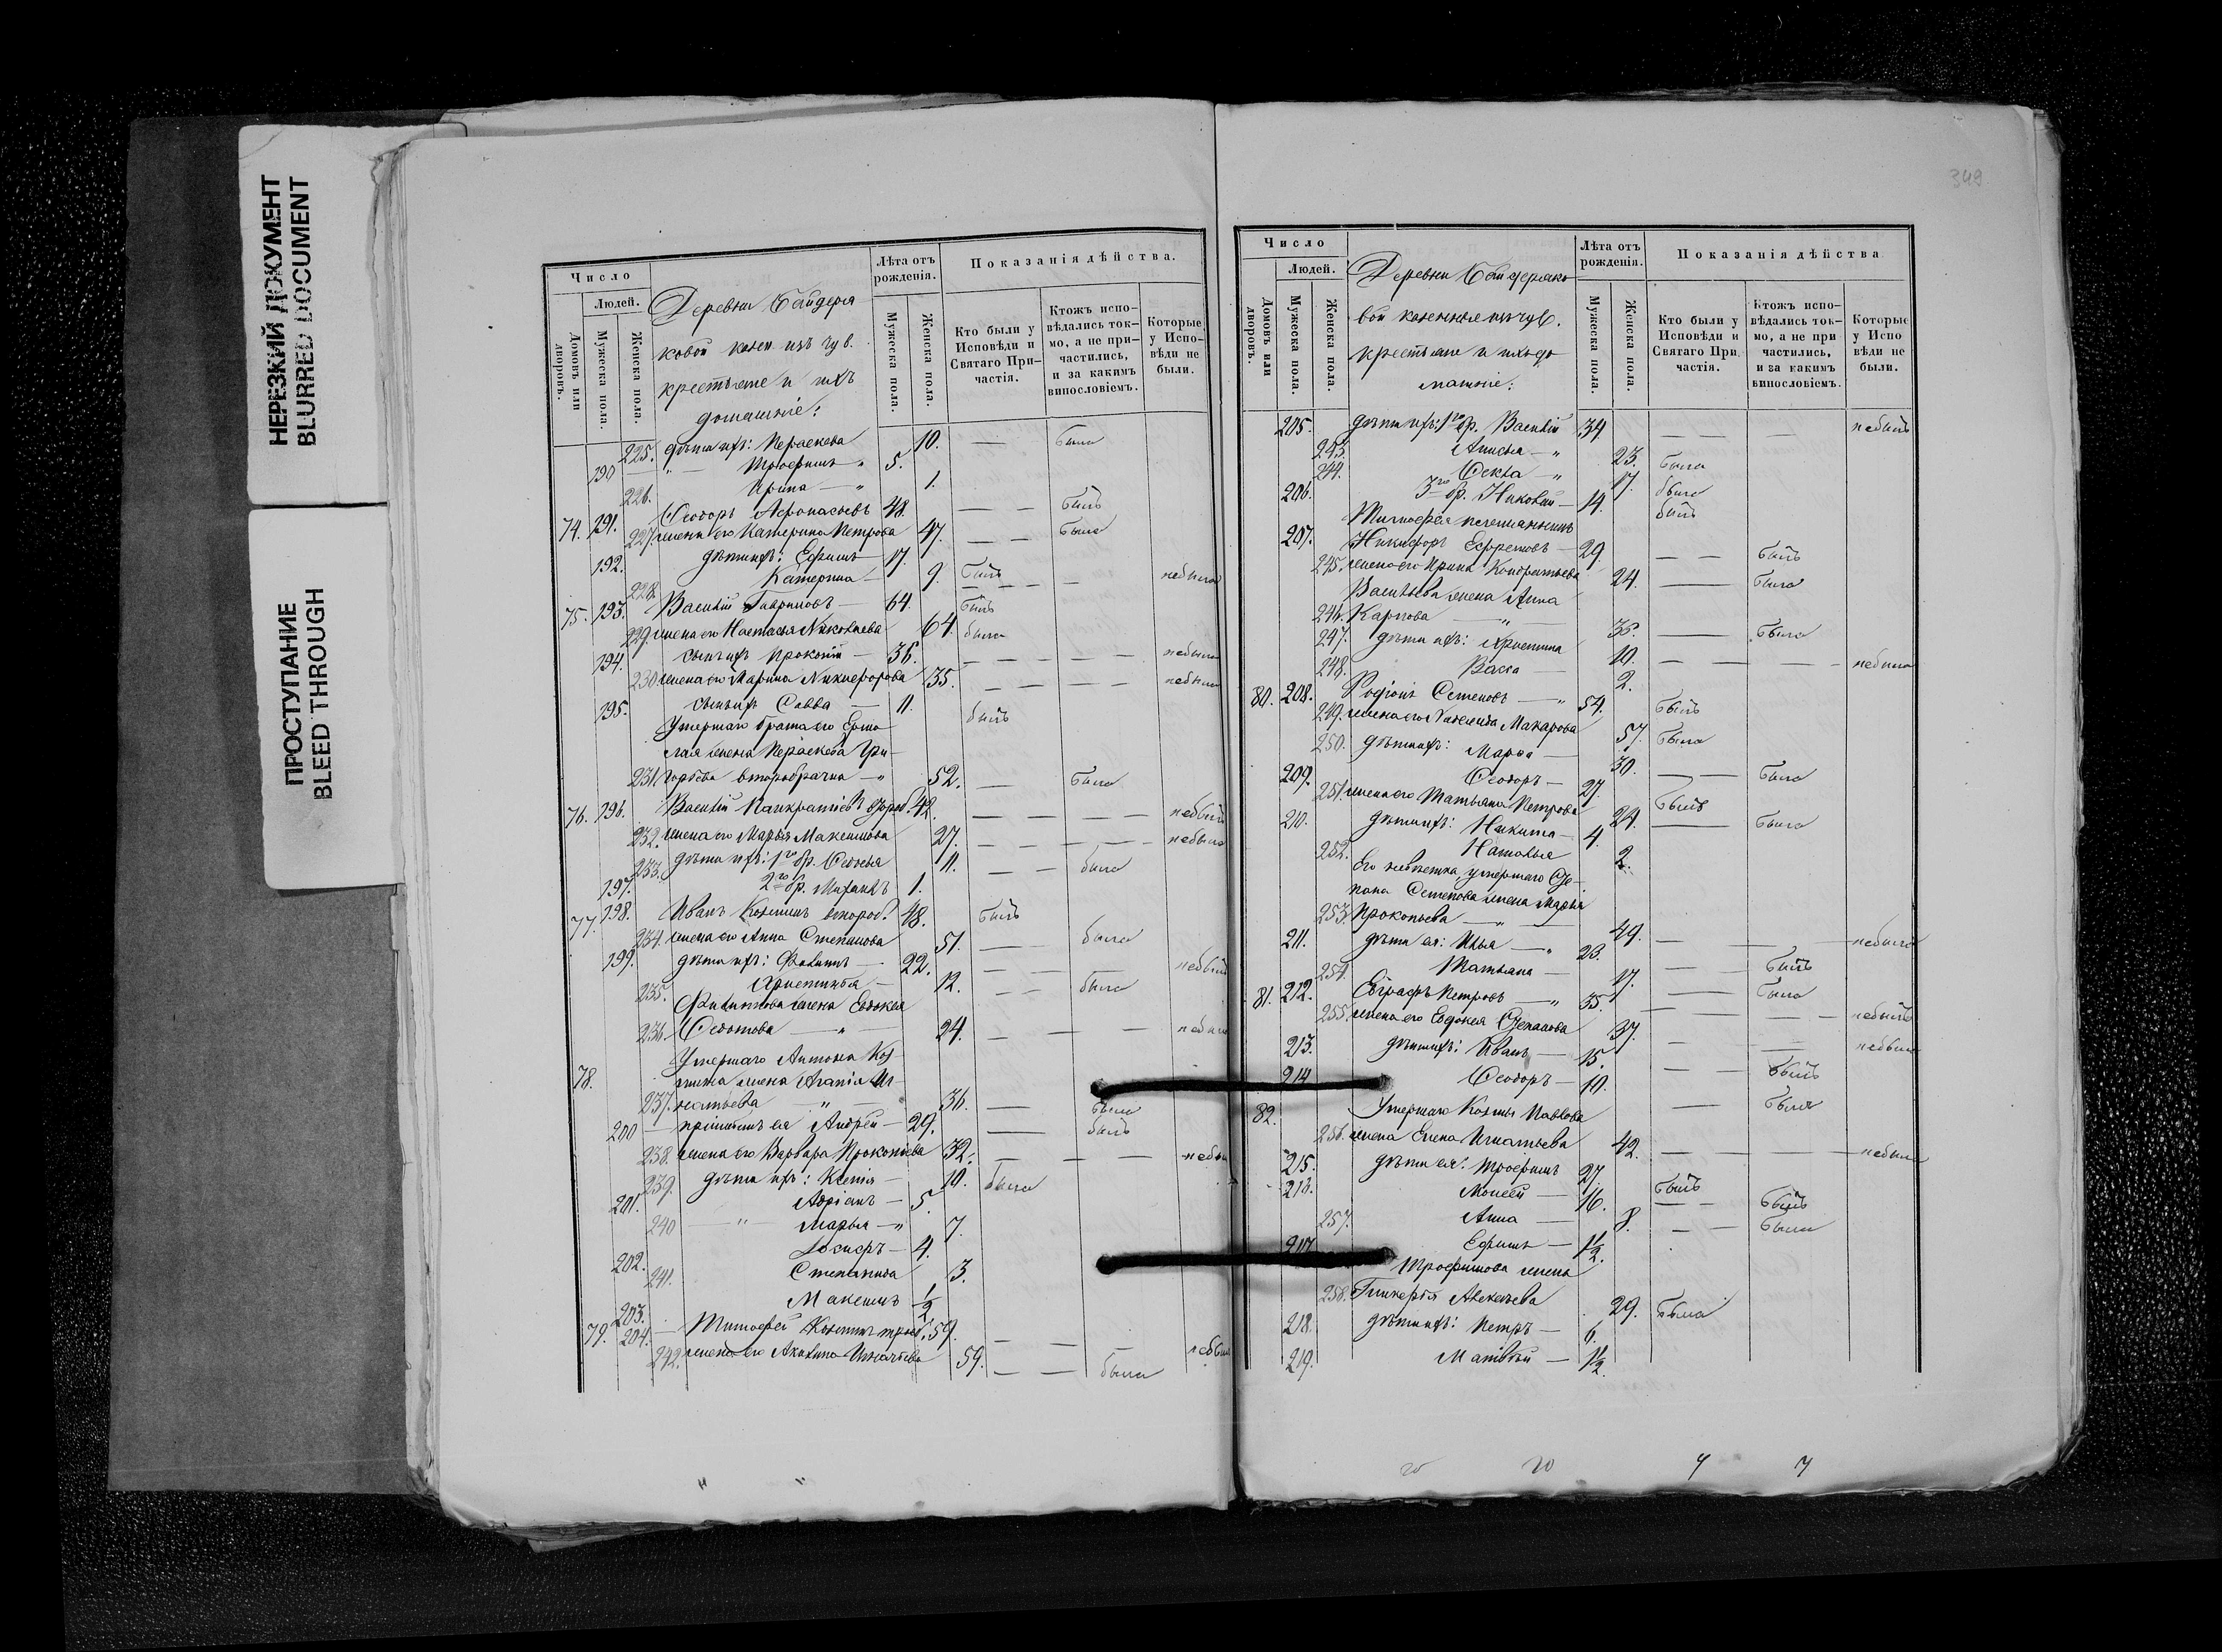 НЕРЕЗКИЙ ДОКУМЕНТ
BLURRED DOCUMENT
ПРОСТУПАНИЕ
BLEED THROUGH
Число
Людей.
Домовъ или дворовъ.
Мужеска пола.
Женска пола.
Деревни Байдеря
ковой казен. изъ чув.
крестьяне и ихъ
домашніе:
Лѣта отъ рожденія.
Мужеска пола.
Женска пола.
Показанія дѣйства.
Кто были у Исповѣди и Святаго Причастія.
Ктожъ исповѣдались токмо, а не причастились, и за какимъ винословіемъ.
Которые у Исповѣди не были.
225. дѣти ихъ: Параскева 10. — — была
190 " — Трофимъ " 5.
226. Ирина — " 1.
74. 191. Ѳеодоръ Афонасьевъ 48. — — былъ
227. жена его Катерина Петрова 47. — — была
192. дѣти ихъ: Ефимъ 17. былъ
228. Катерина — 9. — — — небыла
75. 193. Василій Гавриловъ — 64. былъ
229. жена его Настасья Николаева 64. была
194. сынъ ихъ Прокопій — 36. — — — — небылъ
230. жена его Марина Никифорова 35. — — — небыла
195. сынъ ихъ Савва — 11. былъ
Умершаго брата его Ермо
лая жена Параскева Гри-
231. горьева второбрачна — " 52. — была
76. 196. Василій Панкратіевъ второб. 42. — — — — небылъ
232. жена его Марья Максимова 27. — — — — небыла
233. дѣти ихъ: 1го бр. Ѳедосья 11. — — была
197. 2го бр. Михаилъ 1.
77. 198. Иванъ Козминъ второб. 48. былъ
234. жена его Анна Степанова 51. — — была
199. дѣти ихъ: Филиппъ — 22. — — — небылъ
235. Христинья — 12. — — была
Филиппова жена Евдокея
236. Ѳедотова — " — 24. — — — небыла
78. Умершаго Антона Коз
мина жена Агапія Иг-
237. натьева " — 36. — была
200 — пріимышъ ея Андрей — 29. — былъ
238. жена его Варвара Прокопіева 32. — — — небыла
239. дѣти ихъ: Ксенія — 10. была
201. Адріанъ — 5.
240 — " — Марья — " 7.
202. Іосифъ — 4.
241. Степанида 3.
203. Максимъ 1/2
79. 204. — Тимофей Козминъ троеб. 59. — — небылъ
242. жена его Акилина Игнатіева 59. — — была
349
Число
Людей.
Домовъ или дворовъ.
Мужеска пола.
Женска пола.
Деревни Байдеряко
вой казенные изъ чув.
крестьяне и ихъ до
машніе:
Лѣта отъ рожденія.
Мужеска пола.
Женска пола.
Показанія дѣйства
Кто были у Исповѣди и Святаго При частія.
Ктожъ исповѣдались токмо, а не при частились, и за какимъ винословіемъ.
Которые у Испо вѣди не были.
205. дѣти ихъ: 1го бр. Василій 34. — — — небылъ
243. Анисья — " 23. была
244. Ѳекла — " 17. была
206. 3го бр. Николай — 14. былъ
Тимофея племянникъ
207. Никифоръ Ефремовъ — 29. — — былъ
245. жена его Ирина Кондратьева 24. — была
Васильева жена Анна
246. Карпова — " — 36. — была
247. дѣти ихъ: Христина 10. — — — небыла
248. Васса — 2.
80. 208. Родіонъ Семеновъ — " 54. былъ
249. жена его Макарова 57. была
250. дѣти ихъ: Марья — 30. — — была
209. Ѳеодоръ — 27. былъ
251. жена его Татьяна Петрова 24. — была
210. дѣти ихъ: Никита — 4.
252. Наталья 2.
Его невѣстка, умершаго Сте-
пана Семенова жена Марья
253. Прокопьева — " — 49. — — — небыла
211. дѣти ея: Илья — " 23. — былъ
254. Татьяна — 17. — была
81. 212. Евграфъ Петровъ — " 35. — — — небылъ
255. жена его Евдокея Степанова 37. — — небыла
213. дѣти ихъ: Иванъ — 15. — — былъ
214 Ѳеодоръ — 10. — былъ
82. Умершаго Козмы Павлова
256. жена Елена Игнатьева 42. — — — небыла
215. дѣти ея: Трофимъ 27. былъ
216. Моисей — 16. — — былъ
257. Анна — 8. — — была
217 Ефимъ — 1 1/2.
Трофимова жена
258. Гликерія Алексѣева 29. была
218. дѣти ихъ: Петръ — 6.
219. Матвѣй — 1 1/2.
20 20 7 7